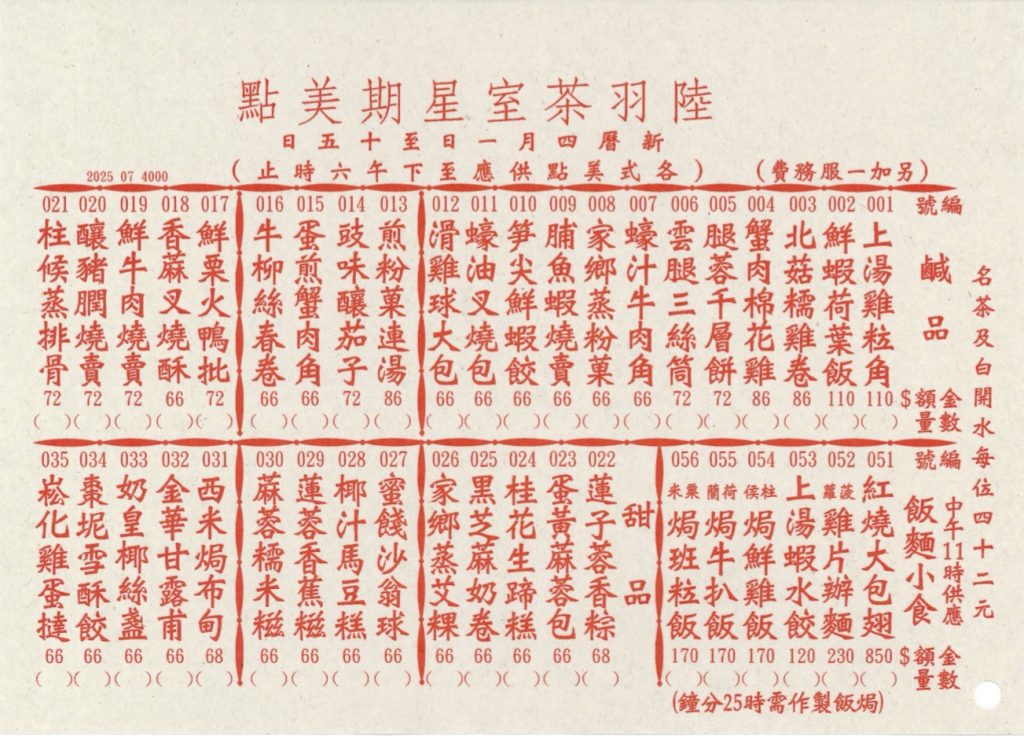 陸羽茶室星期美點
新曆四月一日至十五日
(各式美點供應至下午六時止)
(另加一服務費)
2025 07 4000
名茶及白開水每位四十二元
編號
鹹品
金額$
數量
001 上湯雞粒角 110 ( )
002 鮮蝦荷葉飯 110 ( )
003 北菇糯雞卷 86 ( )
004 蟹肉棉花雞 86 ( )
005 腿蓉千層餅 72 ( )
006 雲腿三絲筒 72 ( )
007 蠔汁牛肉角 66 ( )
008 家鄉蒸粉菓 66 ( )
009 脯魚蝦燒賣 66 ( )
010 笋尖鮮蝦餃 66 ( )
011 蠔油叉燒包 66 ( )
012 滑雞球大包 66 ( )
013 煎粉菓連湯 86 ( )
014 豉味釀茄子 72 ( )
015 蛋煎蟹肉角 66 ( )
016 牛柳絲春卷 66 ( )
017 鮮粟火鴨批 72 ( )
018 香蔴叉燒酥 66 ( )
019 鮮牛肉燒賣 72 ( )
020 釀豬膶燒賣 72 ( )
021 柱候蒸排骨 72 ( )
編號
中午11時供應
飯麵小食
金額$
數量
051 紅燒大包翅 850 ( )
052 菠蘿雞片辦麵 230 ( )
053 上湯蝦水餃 120 ( )
054 柱侯焗鮮雞飯 170 ( )
055 荷蘭焗牛扒飯 170 ( )
056 粟米焗班粒飯 170 ( )
(焗飯製作需時25分鐘)
甜品
022 蓮子蓉香粽 68 ( )
023 蛋黃蔴蓉包 66 ( )
024 桂花生蹄糕 66 ( )
025 黑芝蔴奶卷 66 ( )
026 家鄉蒸艾粿 66 ( )
027 蜜餞沙翁球 66 ( )
028 椰汁馬豆糕 66 ( )
029 蓮蓉香蕉糍 66 ( )
030 蔴蓉糯米糍 66 ( )
031 西米焗布甸 68 ( )
032 金華甘露甫 66 ( )
033 奶皇椰絲盞 66 ( )
034 棗坭雪酥餃 66 ( )
035 崧化雞蛋撻 66 ( )